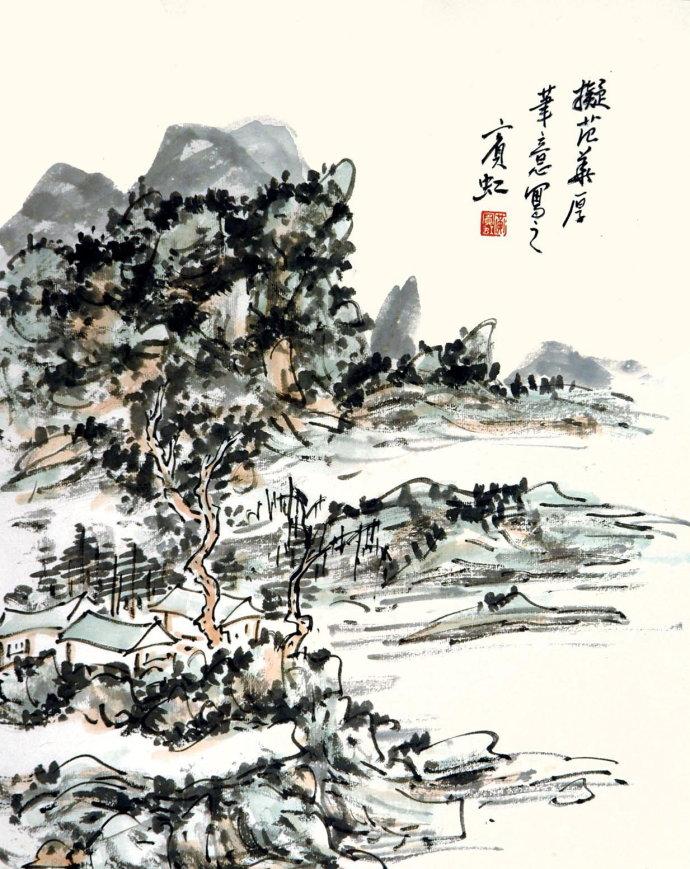 擬范華厚
筆意寫之
賓虹